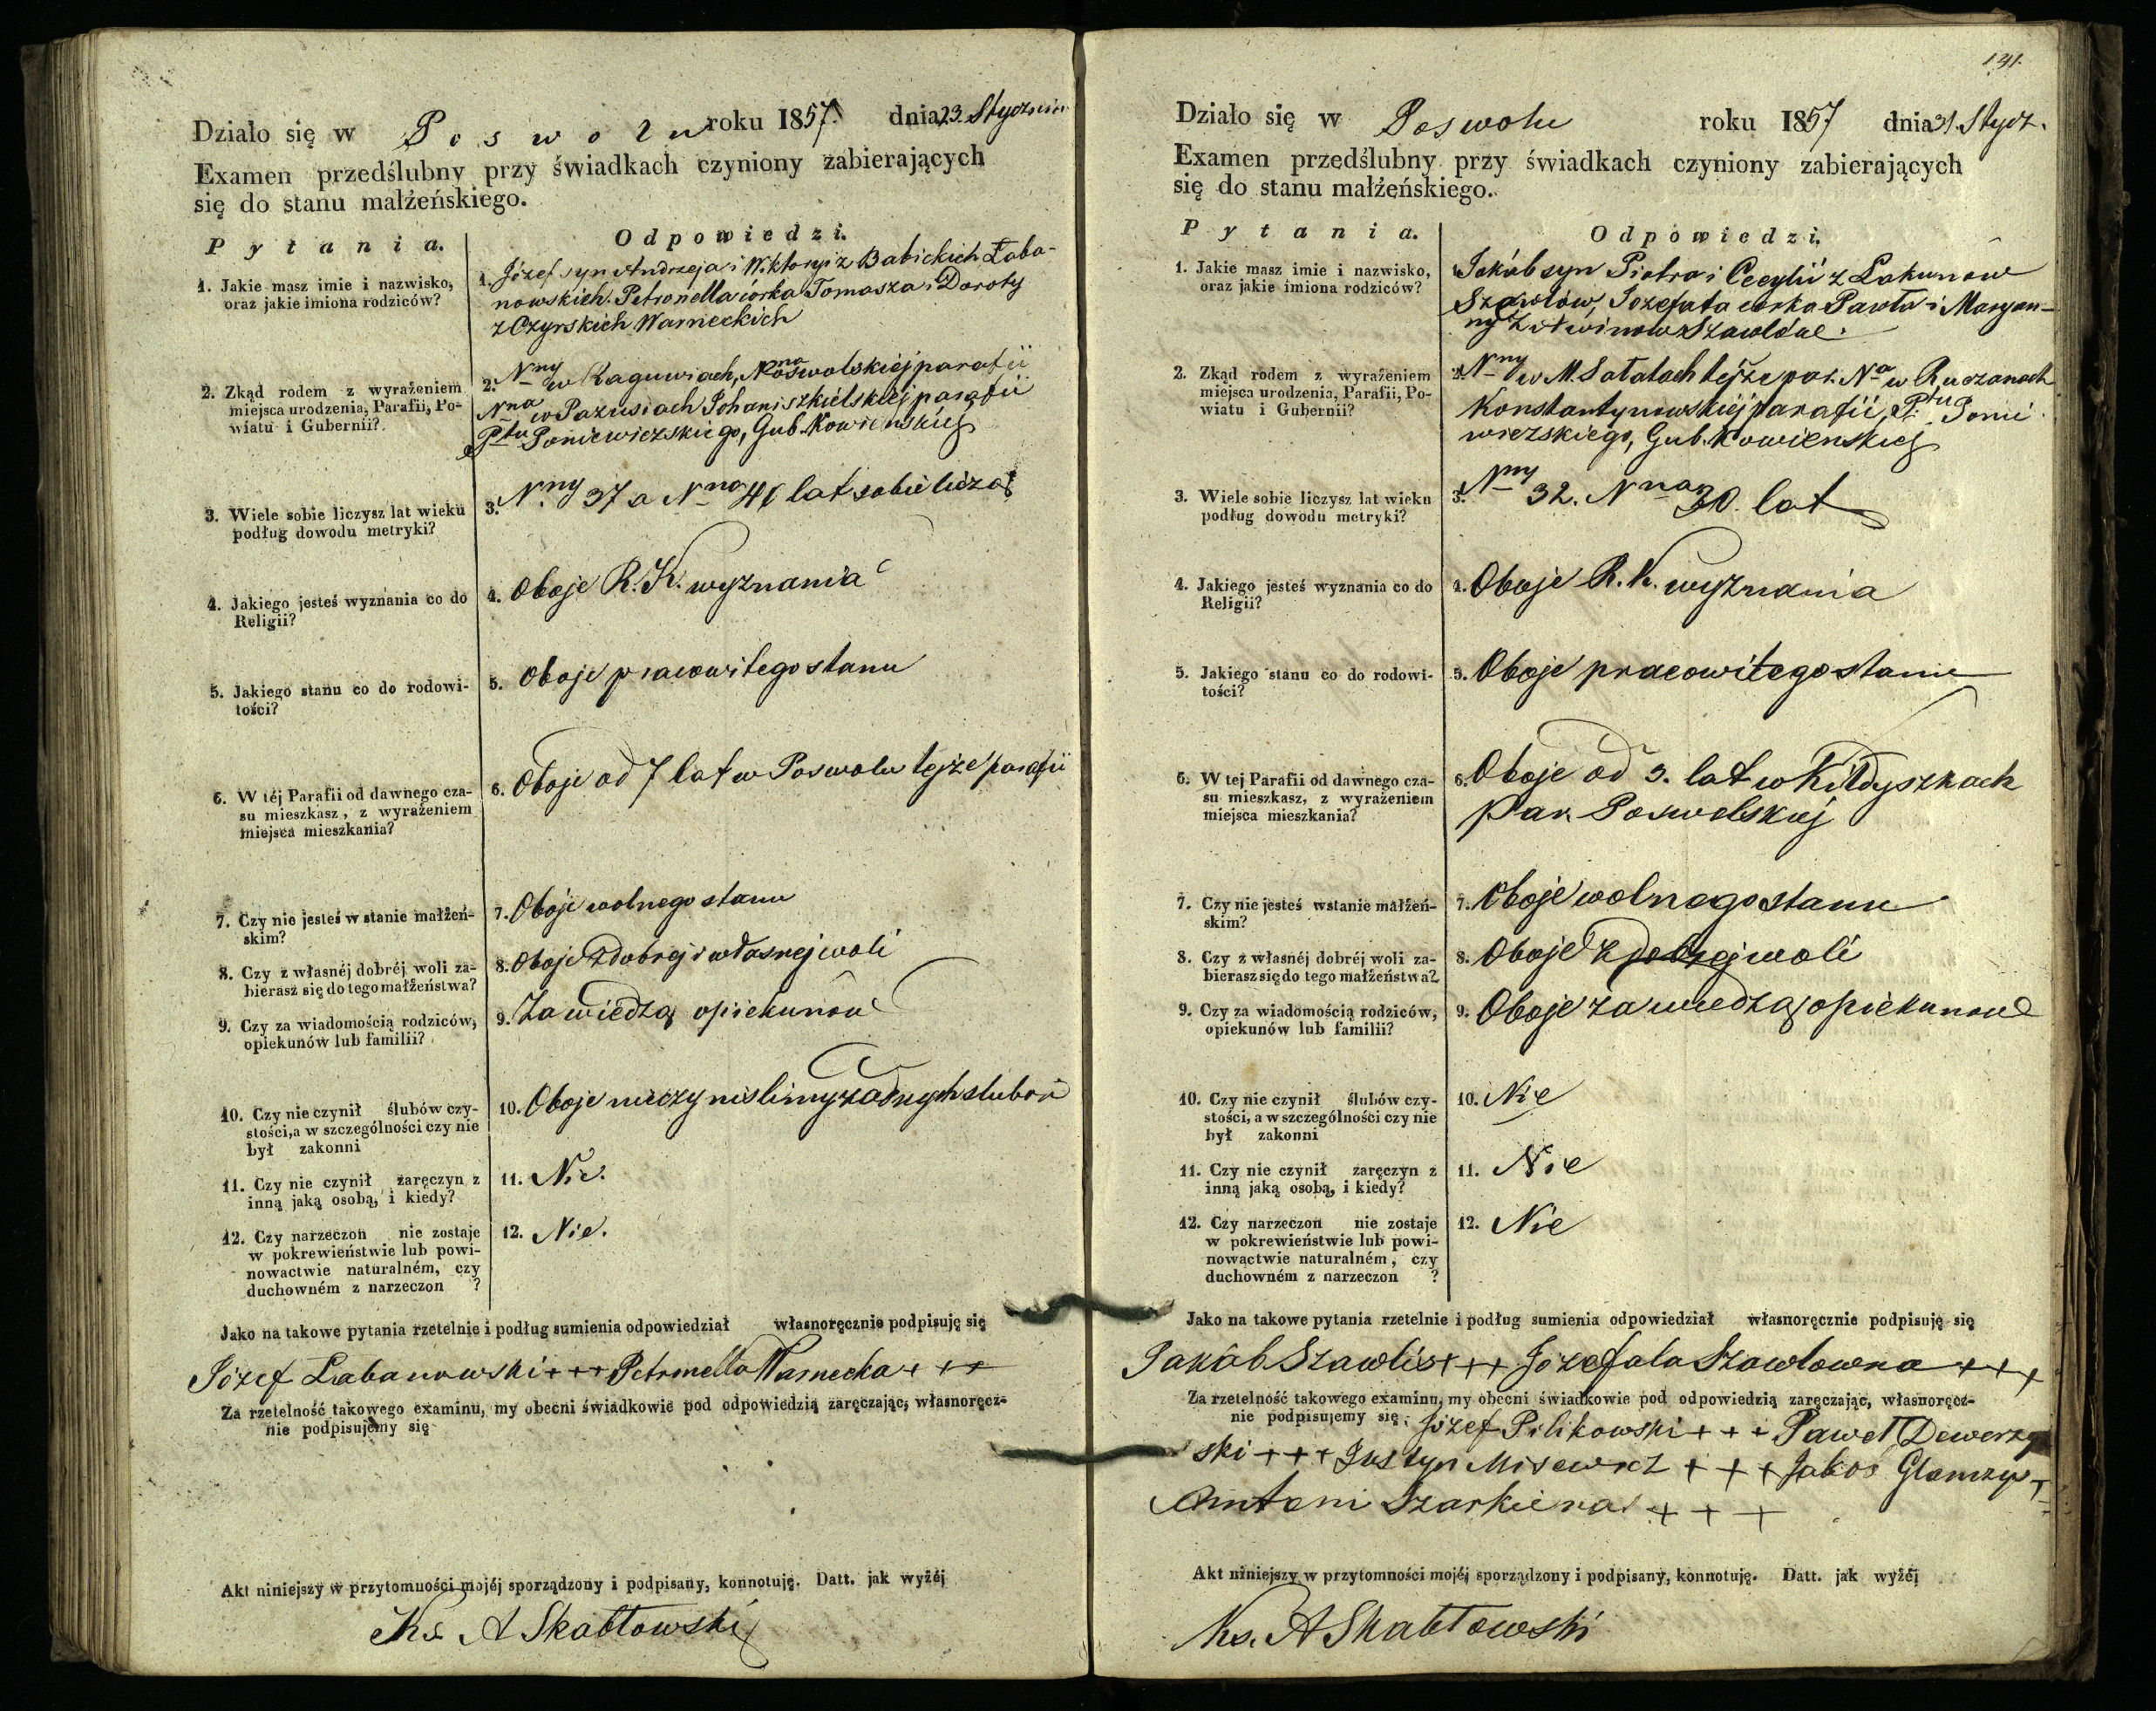 Działo się w Poswolu roku 1857. dnia 23. Stycznia
Examen przedślubny przy świadkach czyniony zabierających
się do stanu małżeńskiego.
Pytania.
Odpowiedzi.
1. Jakie masz imie i nazwisko,
oraz jakie imiona rodziców?
1. Józef syn Andrzeja i Wiktoryi z Babickich Łaba-
nowskich. Petronella córka Tomasza i Doroty
z Czyrskich Warneckich
2. Zkąd rodem z wyrażeniem
miejsca urodzenia, Parafii, Po-
wiatu i Gubernii?
2. Nny w Raguwiach, Poswolskiej parafii
Nna w Pazusiach Johaniszkielskiej parafii
Ptu Poniewiezskiego, Gub. Kowieńskiej
3. Wiele sobie liczysz lat wieku
podług dowodu metryki?
3. Nny 37 a Nna 41 lat sobie liczą
4. Jakiego jesteś wyznania co do
Religii?
4. Oboje R. K. wyznania
5. Jakiego stanu co do rodowi-
tości?
5. Oboje pracowitego stanu
6. W téj Parafii od dawnego cza-
su mieszkasz, z wyrażeniem
miejsca mieszkania?
6. Oboje od 7 lat w Poswolu tejże parafii
7. Czy nie jesteś w stanie małżeń-
skim?
7. Oboje wolnego stanu
8. Czy z własnéj dobréj woli za-
bierasz się do tego małżeństwa?
8. Oboje z dobrej i własnej woli
9. Czy za wiadomością rodziców,
opiekunów lub familii?
9. Za wiedzą opiekunów
10. Czy nie czynił ślubów czy-
stości, a w szczególności czy nie
był zakonni
10. Oboje nieczynislimy żadnych slubów
11. Czy nie czynił zaręczyn z
inną jaką osobą, i kiedy?
11. Nie.
12. Czy narzeczon nie zostaje
w pokrewieństwie lub powi-
nowactwie naturalném, czy
duchowném z narzeczon ?
12. Nie.
Jako na takowe pytania rzetelnie i podług sumienia odpowiedział własnoręcznie podpisuję się
Józef Łabanowski +++ Petronella Warnecka +++
Za rzetelność takowego examinu, my obecni świadkowie pod odpowiedzią zaręczając, własnoręcz-
nie podpisujemy się
Akt niniejszy w przytomności mojéj sporządzony i podpisany, konnotuję. Datt. jak wyźéj
Ks. A Skabtowski
131.
Działo się w Poswolu roku 1857 dnia 31. Stycz.
Examen przedślubny przy świadkach czyniony zabierających
się do stanu małżeńskiego.
Pytania.
Odpowiedzi.
1. Jakie masz imie i nazwisko,
oraz jakie imiona rodziców?
Jakób syn Piotra i Cecylii z Łakunow
Szawłów, Jozefata córka Pawła i Maryan-
ny z Litwinow Szawlów.
2. Zkąd rodem z wyrażeniem
miejsca urodzenia, Parafii, Po-
wiatu i Gubernii?
2. Nny w M. Sałatach tejże par. Na w Ruczanach
Konstantynowskiej parafii, Ptu Ponie
wiezskiego, Gub. Kowienskiej
3. Wiele sobie liczysz lat wieku
podług dowodu metryki?
3. Nny 32. Nna 30. lat
4. Jakiego jesteś wyznania co do
Religii?
4. Oboje R. K. wyznania
5. Jakiego stanu co do rodowi-
tości?
5. Oboje pracowitego stanu
6. W tej Parafii od dawnego cza-
su mieszkasz, z wyrażeniem
miejsca mieszkania?
6. Oboje od 3. lat w Kiłdyszkach
par. Poswolskiej
7. Czy nie jesteś wstanie małżeń-
skim?
7. Oboje wolnego stanu
8. Czy z własnéj dobréj woli za-
bierasz się do tego małżeństwa?
8. Oboje z dobrej woli
9. Czy za wiadomością rodziców,
opiekunów lub familii?
9. Oboje za wiedzą opiekunow
10. Czy nie czynił ślubów czy-
stości, a w szczególności czy nie
był zakonni
10. Nie
11. Czy nie czynił zaręczyn z
inną jaką osobą, i kiedy?
11. Nie
12. Czy narzeczon nie zostaje
w pokrewieństwie lub powi-
nowactwie naturalném, czy
duchowném z narzeczon ?
12. Nie
Jako na takowe pytania rzetelnie i podług sumienia odpowiedział własnoręcznie podpisuję się
Jakób Szawlis +++ Józefata Szawłowna +++
Za rzetelność takowego examinu, my obecni świadkowie pod odpowiedzią zaręczając, własnoręcz-
nie podpisujemy się. Józef Pilikowski +++ Paweł Dewerzy
ski +++ Justyn Misewicz +++ Jakób
Antoni Szarkiena +++
Akt niniejszy w przytomności mojéj sporządzony i podpisany, konnotuję. Datt. jak wyżéj
Ks. A Skabtowski